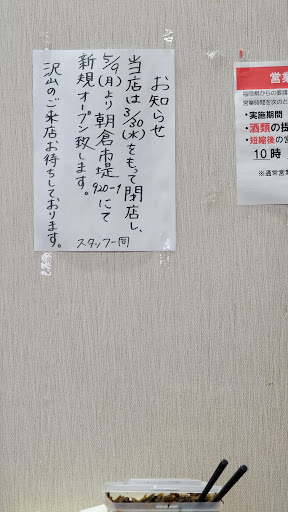 お知らせ
当店は3/30(水)をもって閉店し、
5/9(月)より朝倉市堤920-1にて
新規オープン致します。
沢山のご来店お待ちしております。
スタッフ一同
営業
福岡県からの要請
営業時間を次のと
・実施期間
・酒類の提
・短縮後の営
10時
※通常営業